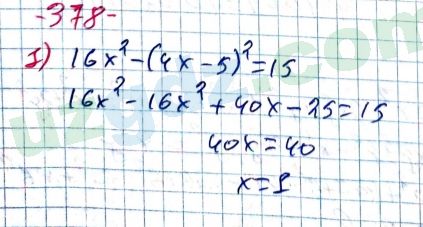 -378-
1) 16x² - (4x - 5)² = 15
16x² - 16x² + 40x - 25 = 15
40x = 40
x = 1